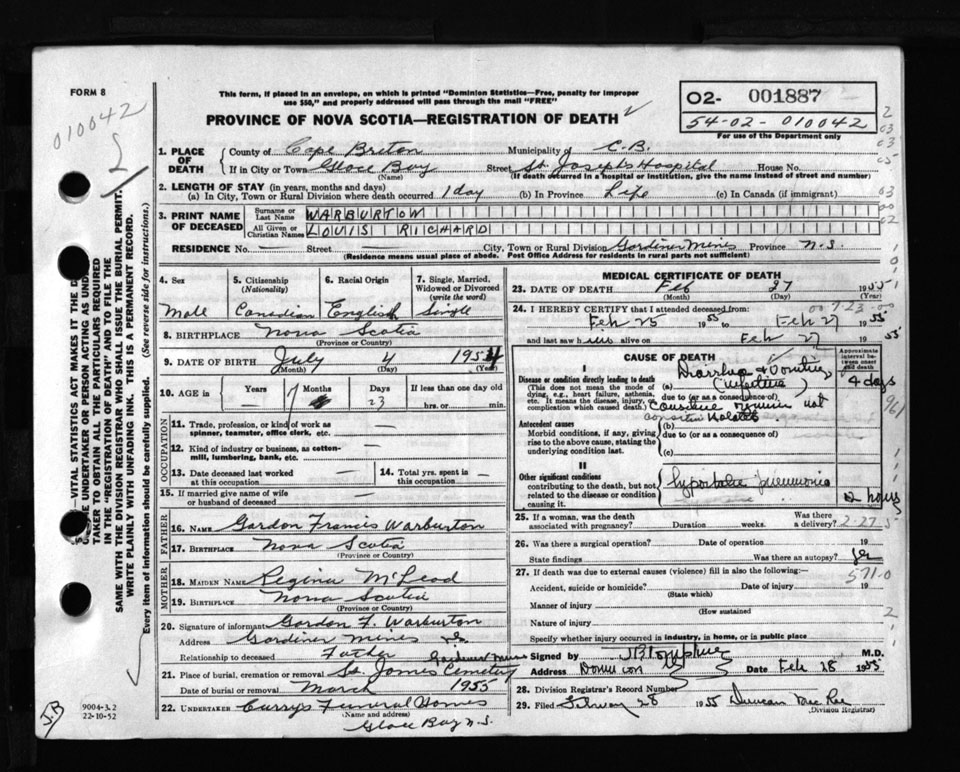 FORM 8
This form, if placed in an envelope, on which is printed "Dominion Statistics—Free, penalty for improper
use $50," and properly addressed will pass through the mail "FREE"
PROVINCE OF NOVA SCOTIA—REGISTRATION OF DEATH
O2- 001887
54-02-010042
For use of the Department only
010042
1. PLACE OF DEATH County of Cape Breton Municipality of C.B.
If in City or Town Glace Bay Street St. Joseph's Hospital House No.
(Name) (If death occurred in a hospital or institution, give the name instead of street and number)
2. LENGTH OF STAY (in years, months and days)
(a) In City, Town or Rural Division where death occurred 1 day (b) In Province Life (c) In Canada (if immigrant)
3. PRINT NAME OF DECEASED Surname or Last Name WARBURTON
All Given or Christian Names LOUIS RICHARD
RESIDENCE No. — Street — City, Town or Rural Division Gardiner Mines Province N.S.
(Residence means usual place of abode. Post Office Address for residents in rural parts not sufficient)
4. Sex Male
5. Citizenship (Nationality) Canadian
6. Racial Origin English
7. Single, Married, Widowed or Divorced (write the word) Single
8. BIRTHPLACE Nova Scotia
(Province or Country)
9. DATE OF BIRTH July 4 1954
(Month) (Day) (Year)
10. AGE in Years — Months 7 Days 23 If less than one day old hrs. or min.
OCCUPATION
11. Trade, profession, or kind of work as spinner, teamster, office clerk, etc. —
12. Kind of industry or business, as cotton-mill, lumbering, bank, etc. —
13. Date deceased last worked at this occupation —
14. Total yrs. spent in this occupation —
15. If married give name of wife or husband of deceased —
FATHER
16. NAME Gordon Francis Warburton
17. BIRTHPLACE Nova Scotia
(Province or Country)
MOTHER
18. MAIDEN NAME Regina McLeod
19. BIRTHPLACE Nova Scotia
(Province or Country)
20. Signature of informant Gordon F. Warburton
Address Gardiner Mines
Relationship to deceased Father
21. Place of burial, cremation or removal St. James Cemetery Gardiner Mines
Date of burial or removal March 1955
22. UNDERTAKER Curry's Funeral Homes
(Name and address)
Glace Bay N.S.
MEDICAL CERTIFICATE OF DEATH
23. DATE OF DEATH Feb 27 1955
(Month) (Day) (Year)
24. I HEREBY CERTIFY that I attended deceased from:
Feb 25 1955 to Feb 27 1955
and last saw him alive on Feb 27 1955
CAUSE OF DEATH
Approximate interval between onset and death
I
Disease or condition directly leading to death
(This does not mean the mode of dying, e.g., heart failure, asthenia, etc. It means the disease, injury, or complication which caused death.)
(a) Diarrhea & Vomiting (infective) 4 days
due to (or as a consequence of)
Antecedent causes
Morbid conditions, if any, giving rise to the above cause, stating the underlying condition last.
(b)
due to (or as a consequence of)
(c)
II
Other significant conditions
contributing to the death, but not related to the disease or condition causing it.
pneumonia
2 hours
25. If a woman, was the death associated with pregnancy? Duration weeks. Was there a delivery? 2-27-5
26. Was there a surgical operation? Date of operation 19
State findings Was there an autopsy? Yes
27. If death was due to external causes (violence) fill in also the following:—
571-0
Accident, suicide or homicide? Date of injury 19
(State which)
Manner of injury
(How sustained
Nature of injury
Specify whether injury occurred in industry, in home, or in public place
Signed by M.D.
Address Dominion Date Feb 28 1955
28. Division Registrar's Record Number
29. Filed February 28 1955 Duncan MacRae
(Division Registrar)
9004-3.2
22-10-52
J.B
VITAL STATISTICS ACT MAKES IT THE
UNDERTAKER OR PERSON ACTING AS UNDER-
TAKER TO OBTAIN ALL THE PARTICULARS REQUIRED
IN THE "REGISTRATION OF DEATH" AND TO FILE THE
SAME WITH THE DIVISION REGISTRAR WHO SHALL ISSUE THE BURIAL PERMIT.
WRITE PLAINLY WITH UNFADING INK. THIS IS A PERMANENT RECORD.
Every item of information should be carefully supplied. (See reverse side for instructions.)